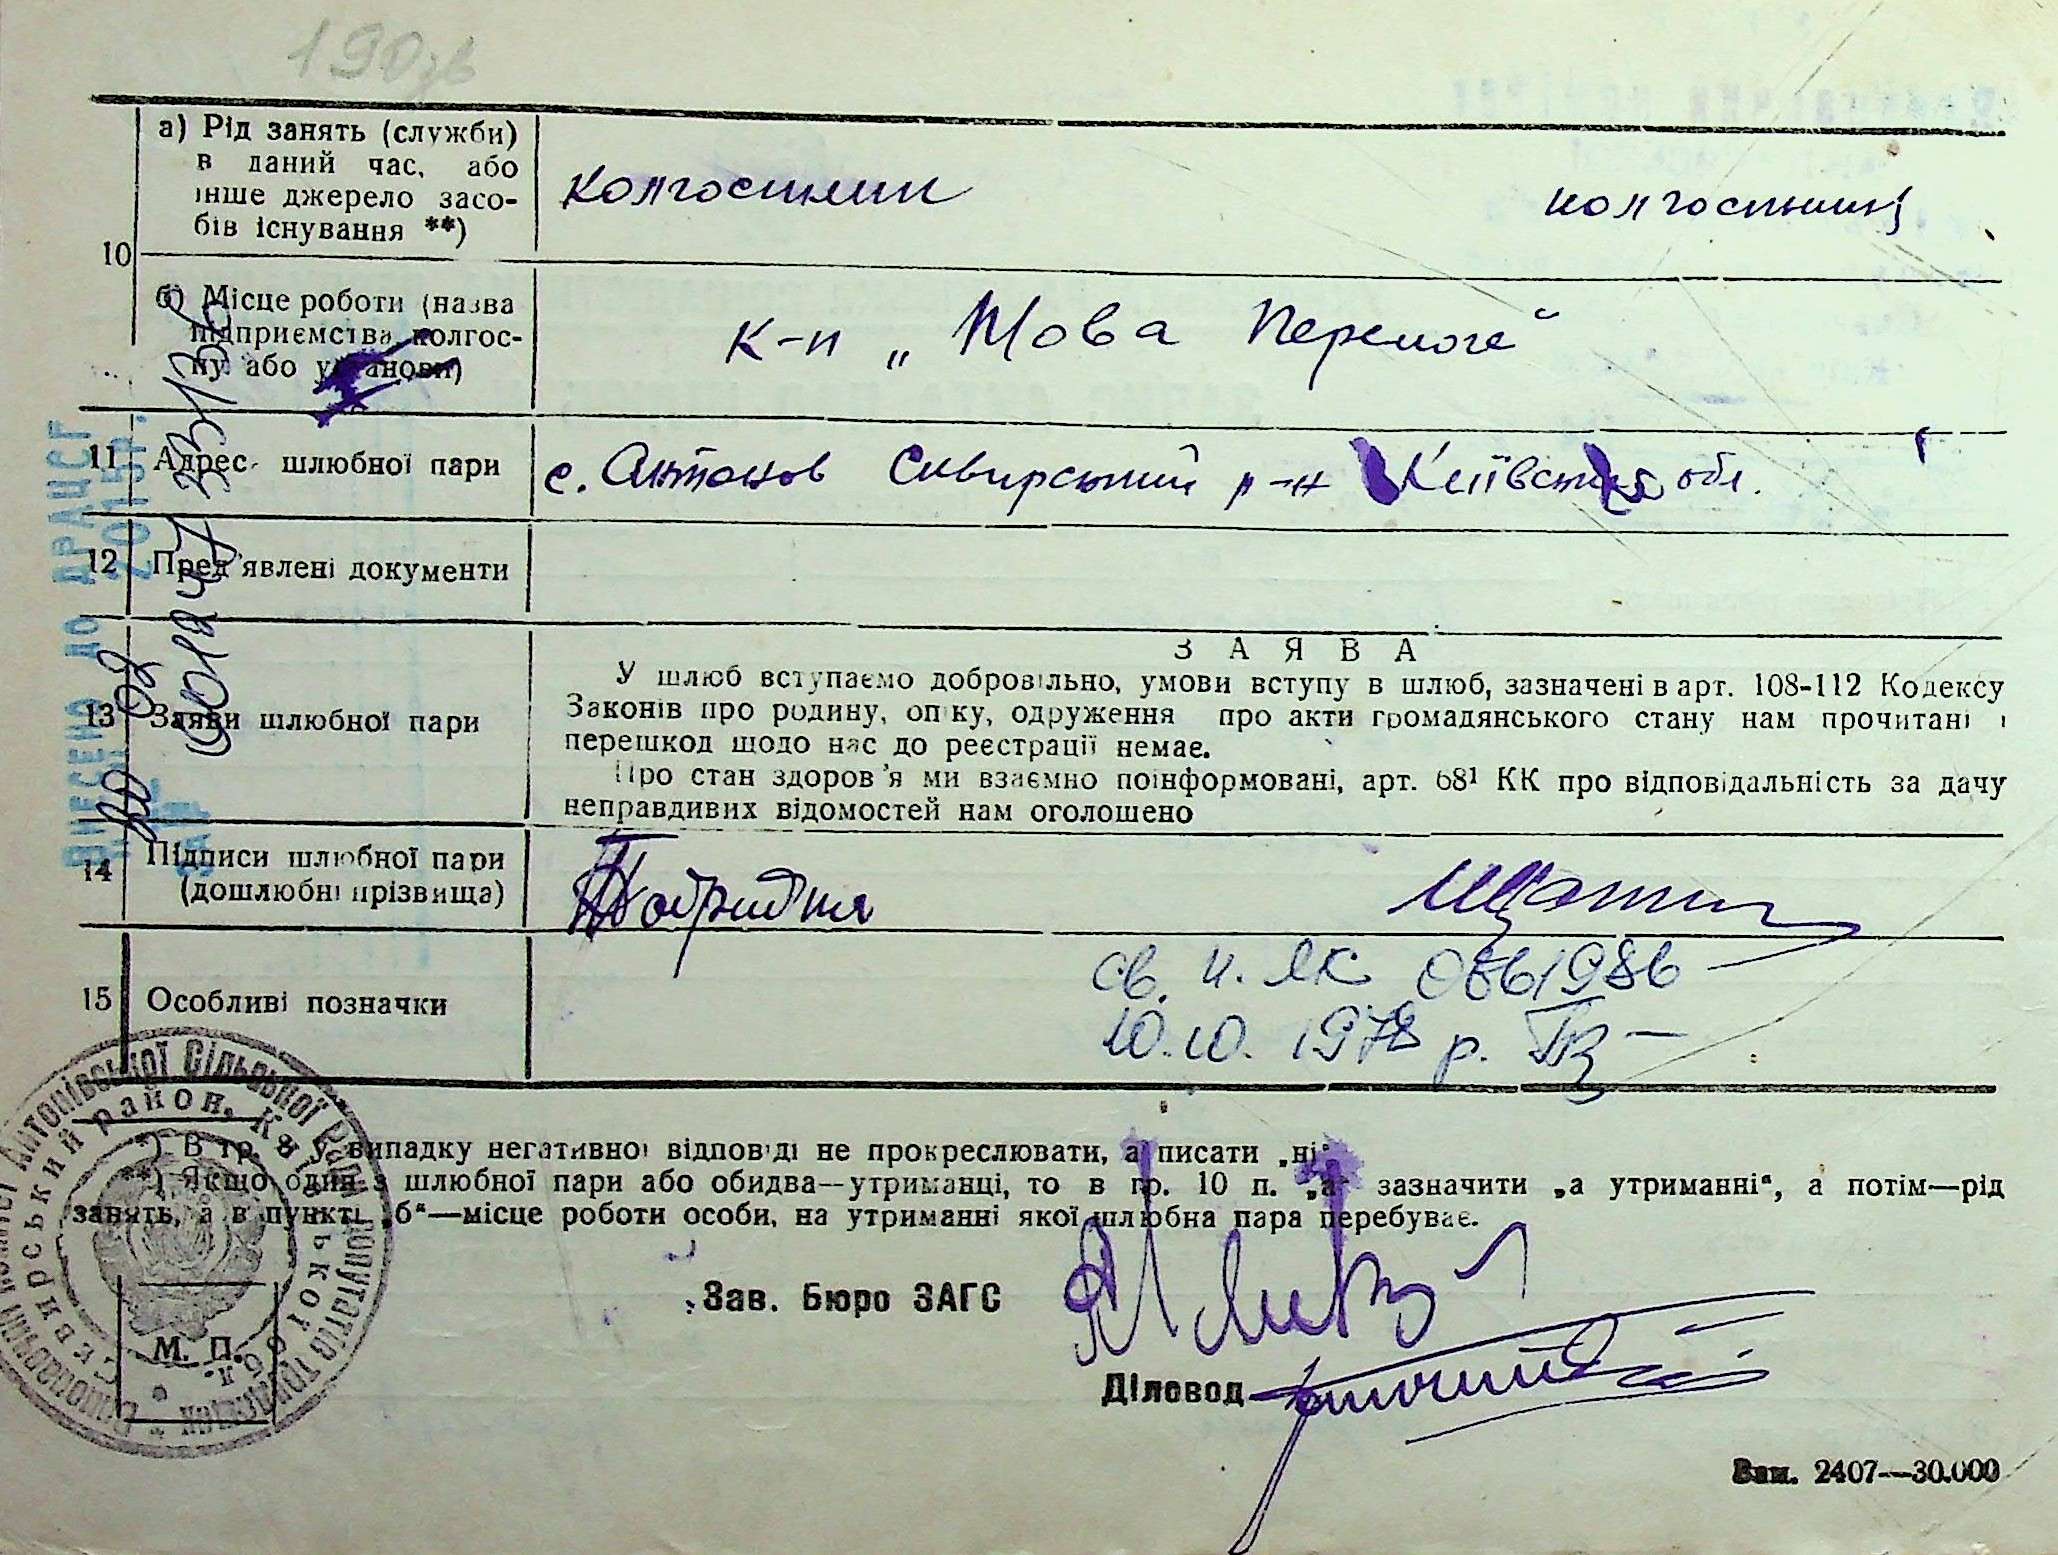 190зв
а) Рід занять (служби)
в даний час, або
інше джерело засо-
бів існування **)
колгоспник колгоспниц
10
б) Місце роботи (назва
підприємства, колгос-
пу або установи)
к-п „Нова Перемога"
11 Адрес шлюбної пари
с. Антонов Сквирський р-н Київська обл.
12 Пред'явлені документи
13 Заяви шлюбної пари
ЗАЯВА
У шлюб вступаємо добровільно, умови вступу в шлюб, зазначені в арт. 108-112 Кодексу
Законів про родину, опіку, одруження про акти громадянського стану нам прочитані і
перешкод щодо нас до реєстрації немає.
Про стан здоров'я ми взаємно поінформовані, арт. 68¹ КК про відповідальність за дачу
неправдивих відомостей нам оголошено
14 Підписи шлюбної пари
(дошлюбні прізвища)
15 Особливі позначки
св. п. ЯК
10.10. 1978 р.
ВНЕСЕНО ДО ДРАЦСГ
2015р.
*) В гр. 8 у випадку негативної відповіді не прокреслювати, а писати „ні"
**) Якщо один з шлюбної пари або обидва—утриманці, то в гр. 10 п. „а" зазначити „а утриманні", а потім—рід
занять, а в пункті „б"—місце роботи особи, на утриманні якої шлюбна пара перебуває.
Зав. Бюро ЗАГС
Діловод
М. П.
Антонівської Сільської Ради депутатів трудящих
Сквирський район, Київської обл.
Зам. 2407—30.000